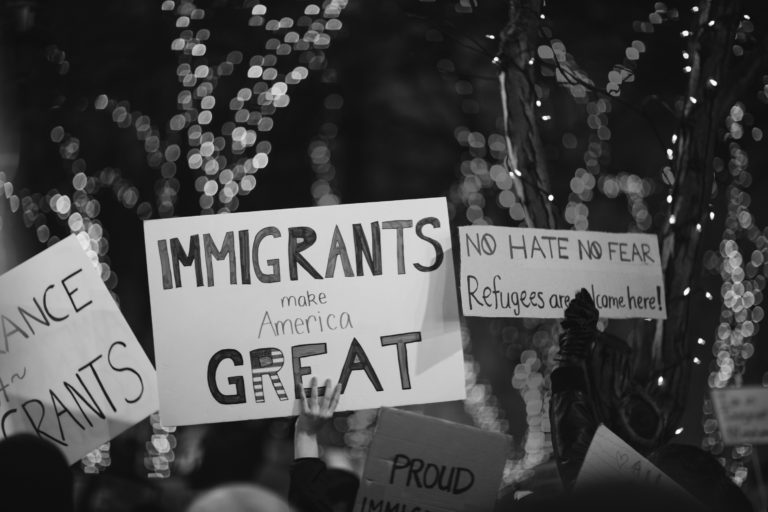 RANCE
GRANTS
IMMIGRANTS
make
America
GREAT
NO HATE NO FEAR
Refugees are come here!
PROUD